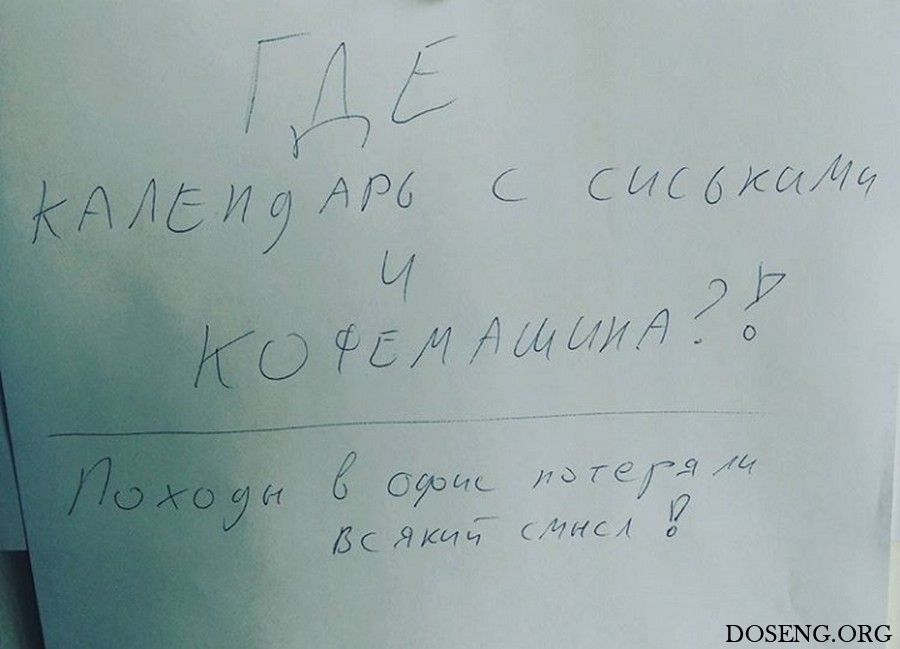 ГДЕ
КАЛЕНДАРЬ С СИСЬКАМИ
И
КОФЕМАШИНА?!
Походы в офис потеряли
всякий смысл!
DOSENG.ORG